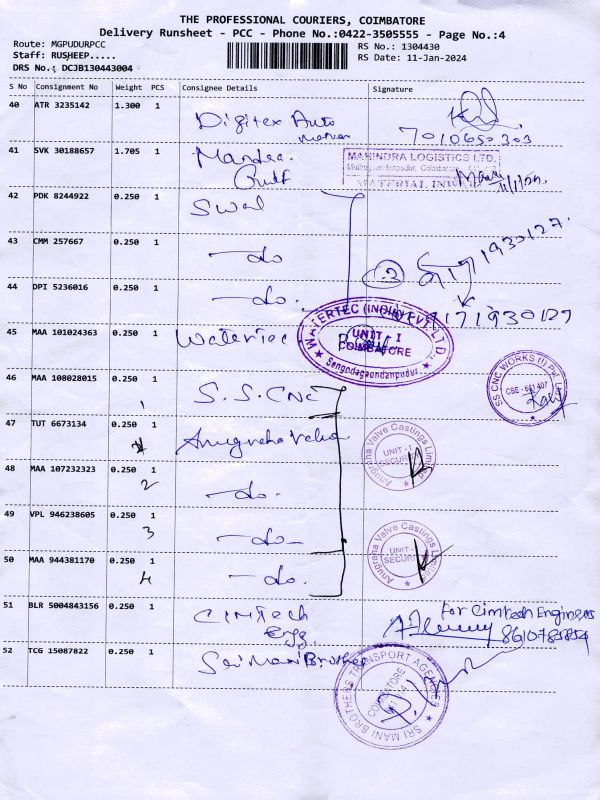 THE PROFESSIONAL COURIERS, COIMBATORE
Delivery Runsheet - PCC - Phone No.:0422-3505555 - Page No.:4
Route: MGPUDURPCC
RS No.: 1304430
Staff: RUSHEEP.....
RS Date: 11-Jan-2024
DRS No.: DCJB130443004
S No Consignment No Weight PCS Consignee Details Signature
40 ATR 3235142 1.300 1 Digitex Auto
7010650303
41 SVK 30188657 1.705 1
MAHINDRA LOGISTICS LTD.
MATERIAL INWARD
11/1/24
42 PDK 8244922 0.250 1 Swel
43 CMM 257667 0.250 1 -do
8171930127.
44 DPI 5236016 0.250 1 -do.
8171930127
45 MAA 101024363 0.250 1 Watertec
WATERTEC (INDIA) PVT. LTD.,
UNIT - I
COIMBATORE
Sengodagoundanpudur
46 MAA 108028015 0.250 1 S.S.CNC
SS CNC WORKS (I) PVT LTD
CBE - 641 407
1
47 TUT 6673134 0.250 1 Anugraha Valve
Anugraha Valve Castings Limited
UNIT - I
SECURITY
48 MAA 107232323 0.250 1 -do.
2
49 VPL 946238605 0.250 1 -do-
3
Anugraha Valve Castings Limited
UNIT -
SECURITY
50 MAA 944381170 0.250 1 -do.
4
51 BLR 5004843156 0.250 1 CIMTech
Engg.
For Cimtech Engineers
52 TCG 15087822 0.250 1 Sri Mani Brothers
SRI MANI BROTHERS TRANSPORT AGENCIES
COIMBATORE